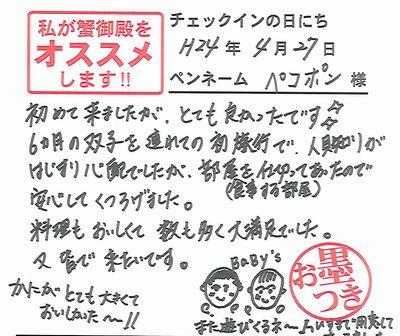 私が蟹御殿を
オススメ
します!!
チェックインの日にち
H24年 4月27日
ペンネーム ペコポン 様
初めて来ましたが、とても良かったです
6カ月の双子を連れての初旅行で、人見知りが
はじまり心配でしたが、部屋を仕切ってあったので
(食事する部屋)
安心してくつろげました。
料理もおいしくて 数も多く大満足でした。
又皆で来たいです。
かにが とても大きくて
おいしかった〜!!
BaBy's
お墨つき
また遊びくるネ〜